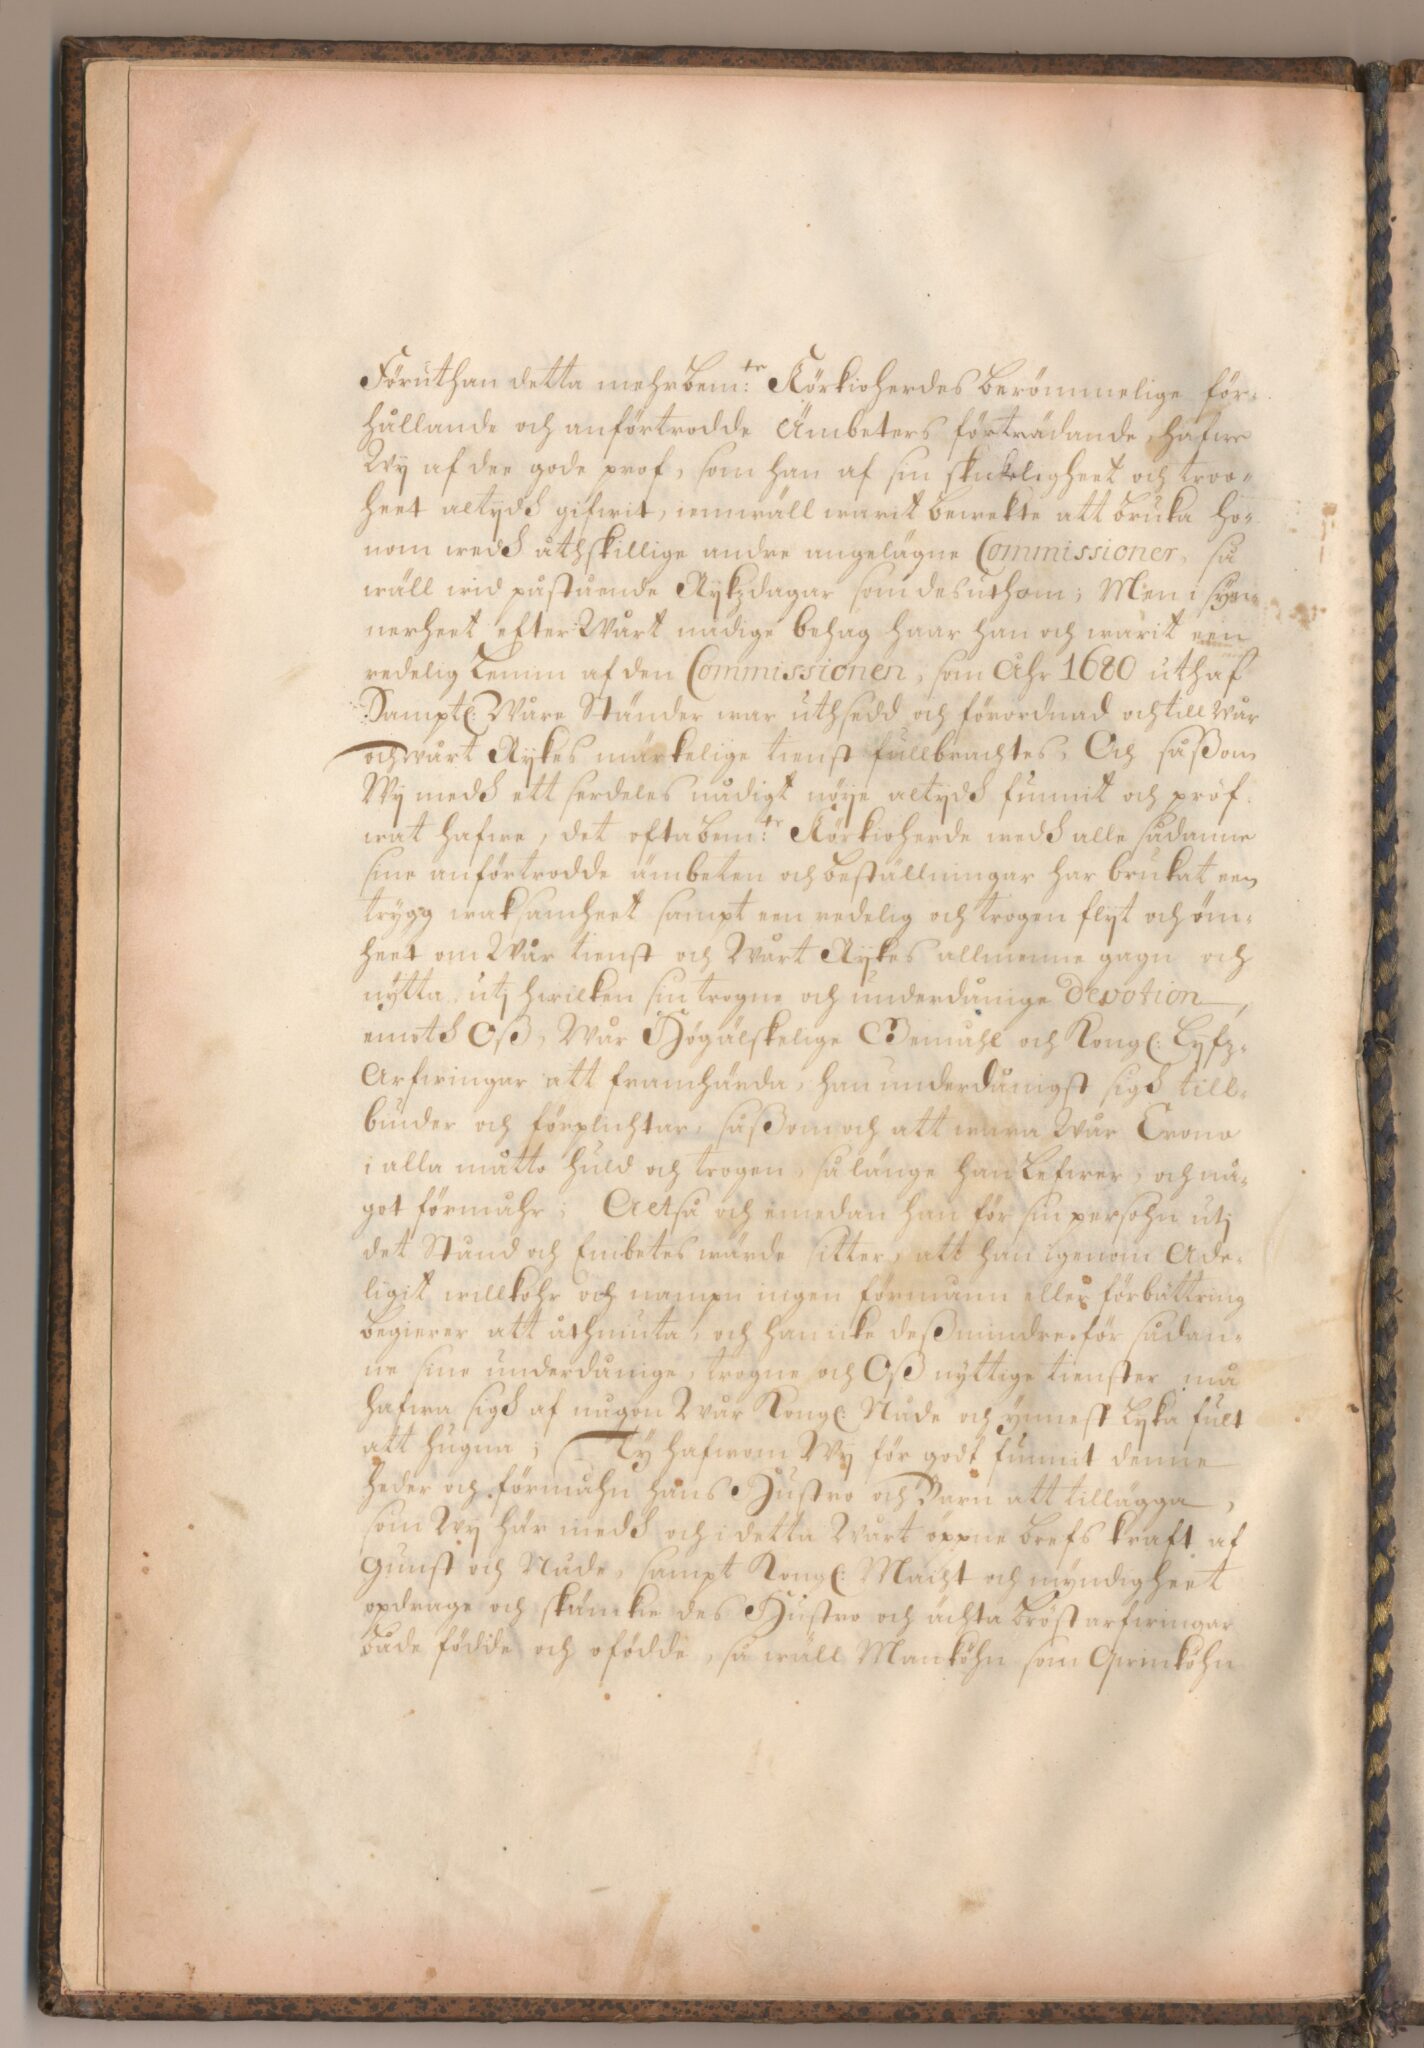 Föruthan detta mehrbem:te Körkioherdes berömmelige för-
hållande och anförtrodde Ämbeters förträdande, hafwe
Wij af dee gode prof, som han af sin skickeligheet och troo-
heet altijdh gifwit, iemwäll warit bewekte att bruka ho-
nom wedh åthskillige andre angelägne Commissioner, så
wäll wid påstående Rykzdagar som desuthom; Men i syn-
nerheet efter Wårt nådige behag haar han och warit een
redelig Lemm af den Commissionen, som Åhr 1680 uthaf
Samptl: Wåre Ständer war uthsedd och förordnad och till wår
och wårt Rykes märkelige tienst fullbrachtes, Och såßom
Wij medh ett serdeles nådigt nöije altijdh funnit och pröf-
wat hafwe, det oftabem:te Körkioherde wedh alle sådanne
sine anförtrodde ämbeten och beställningar har brukat een
trygg waksamheet sampt een redelig och trogen flijt och öm-
heet om Wår tienst och Wårt Rykes allmenne gagn och
nytta, utj hwilken sin trogne och underdånige Devotion,
emoth Oß, Wår Högälskelige Gemåhl och Kongl: Lyfz-
Arfwingar att framhärda, han underdånigst sigh till-
binder och förplichtar, såßom och att wara Wår Crono
i alla måtto huld och trogen, så länge han Lefwer, och nå-
got förmåhr; Altså och emedan han för sin persohn utj
det Stånd och Embetes wärde sitter, att han igenom Ade-
ligit willkohr och nampn ingen förmånn eller förbättring
begierer att åthniuta, och han icke deßmindre för sådan-
ne sine underdånige, trogne och Oß nyttige tienster må
hafwa sigh af någon Wår Kongl: Nåde och ynnest Lyka fult
att hugna; Ty hafwom Wij för godt funnit denne
heder och förmåhn hans Hustro och Barn att tillägga,
som Wij här medh och i detta Wårt öppne brefs kraft af
Gunst och Nåde, sampt Kongl: Macht och myndigheet
opdrage och skänckie des Hustro och ächta bröstarfwingar
både födde och ofödde, så wäll Manköhn som Qwinköhn